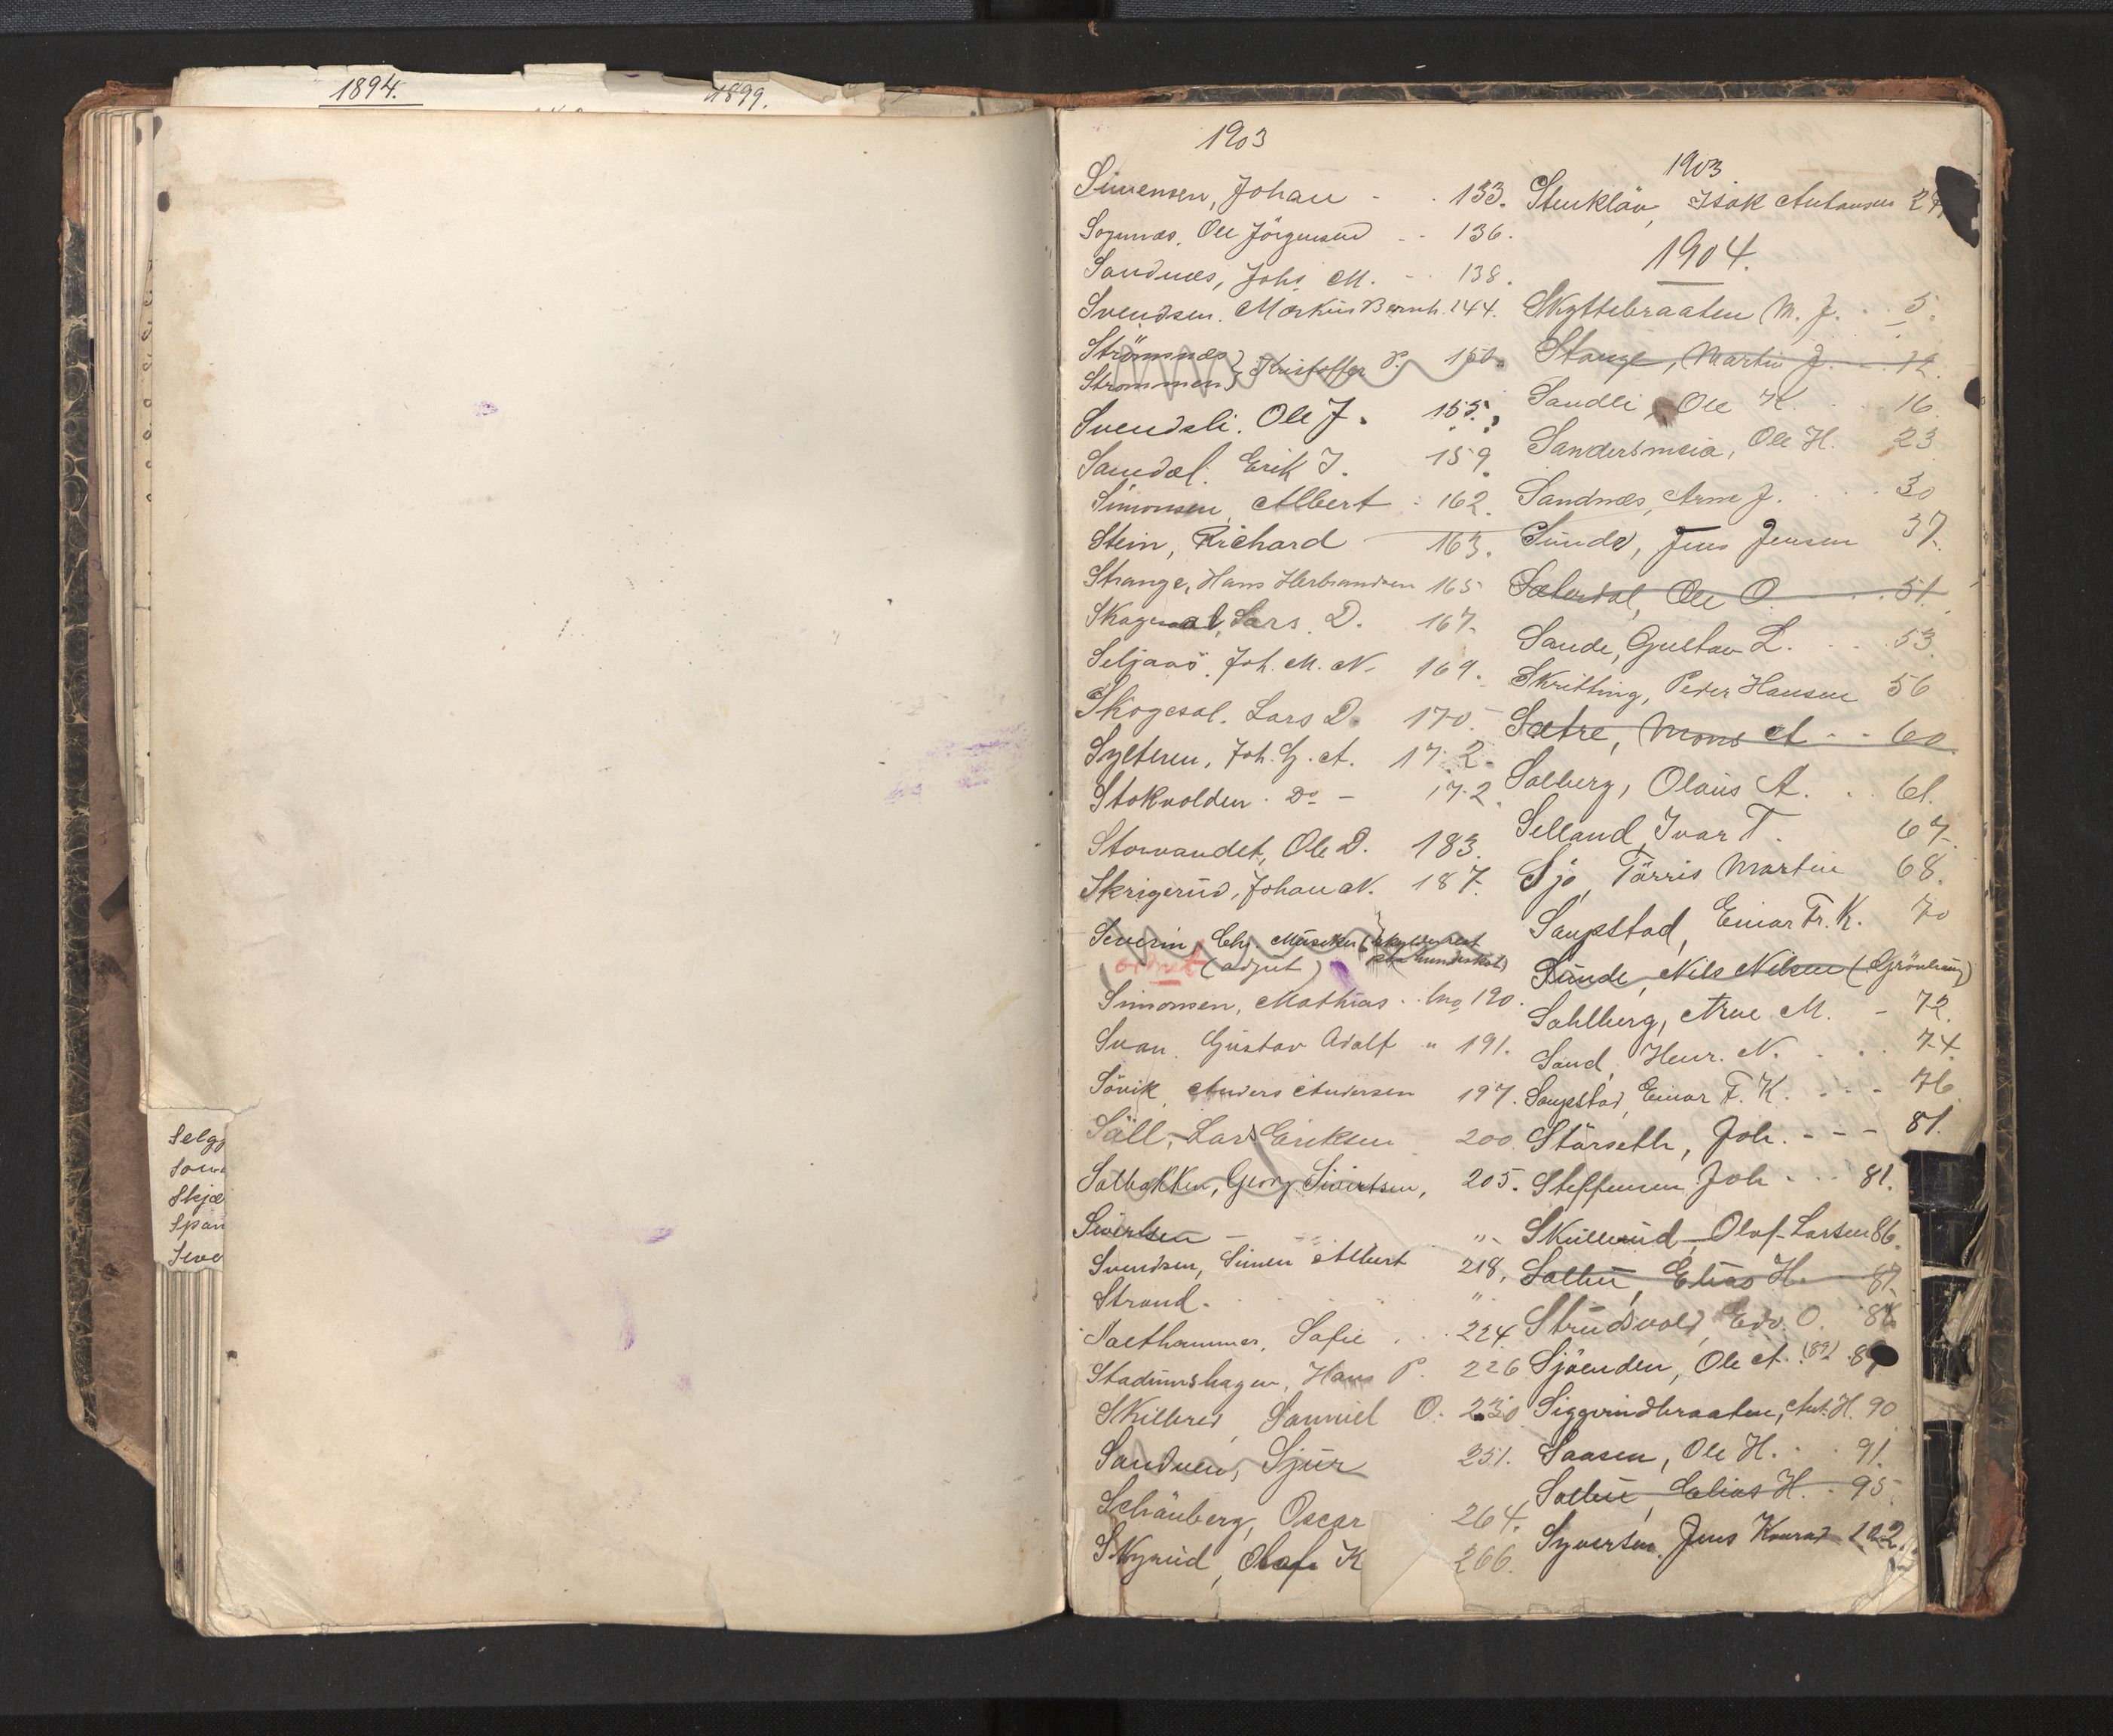 1894.
1899.
Selg
Skjæ
Span
1903
Simensen, Johan - . 133.
Sognnæs, Ole Jörgensen - - 136.
Sandnæs, Johs M. - . 138.
Svendsen. Markus Bernh. 144.
Strömsnæs
Strømmen } Kristoffer P. 150.
Svendsli. Ole J. 155.
Sandal. Erik I. 159.
Simonsen, Albert - 162.
Stein, Richard 163.
Strange, Hans Herbrandsen 165
Lars D. 167.
Seljaas. Joh. M. N. 169.
Skogesal. Lars D. 170.
Sylteren, Joh. G. A. 172.
Stokvolden. Do - 172.
Storvandet, Ole D. 183.
Skrigerud, Johan N. 187.
Severin, Chr. Musiker
ordnet (adjut)
Simonsen, Mathias . . 190.
Svan. Gustav Adolf " 191.
Sövik, Anders Andersen 197.
Säll, Lars Eriksen 200
Solbakken, Georg Sivertsen, 205.
Sivertsen - - "-
Svendsen, Simen Albert 218.
Strand. "
Salthammer, Sofie . . . 224.
Stadumshagen, Hans P. 226
Skilbred, Samuel O. 230
Sandven, Sjur 251.
Schänberg, Oscar 264.
Skyrud, Olaf K 266.
1903.
Stenkløv, Isak Antonsen
1904.
Skyttebraaten M. J. . . 5.
Stange, Martin J. . . . 12.
Sandli, Ole K. . . 16.
Sandersmoia, Ole H. 23
Sandnæs, Arne J. . . . 30
Sunde, Jens Jensen 37.
Sæterdal, Ole O. . . . 51.
Sande, Gustav L. . . . 53.
Skritting, Peder Hansen 56
Sætre, Mons A - - 60.
Solberg, Olaus A. . . 61.
Selland, Ivar T. 67.
Sjo, Tärris Martin 68.
Saupstad, Einar Fr. K. 70
Sunde, Nils Nilsen
Sahlberg, Arne M. - 72.
Sand, Henr. N. . . . 74.
Saupstad, Einar F. K. . . - 76
Stärseth, Joh. - - - 81.
Steffensen Joh - . . 81.
Skullerud, Olaf Larsen 86.
Solbu, Elias H. 87.
Strudsvold, Edv. O. 88
Sjöenden, Ole A. (89)
Siggerudbraaten, Ant. H. 90
Saasen, Ole H. . . 91.
Solbu, Elias H. . 95.
Syversen, Jens Konrad 102.